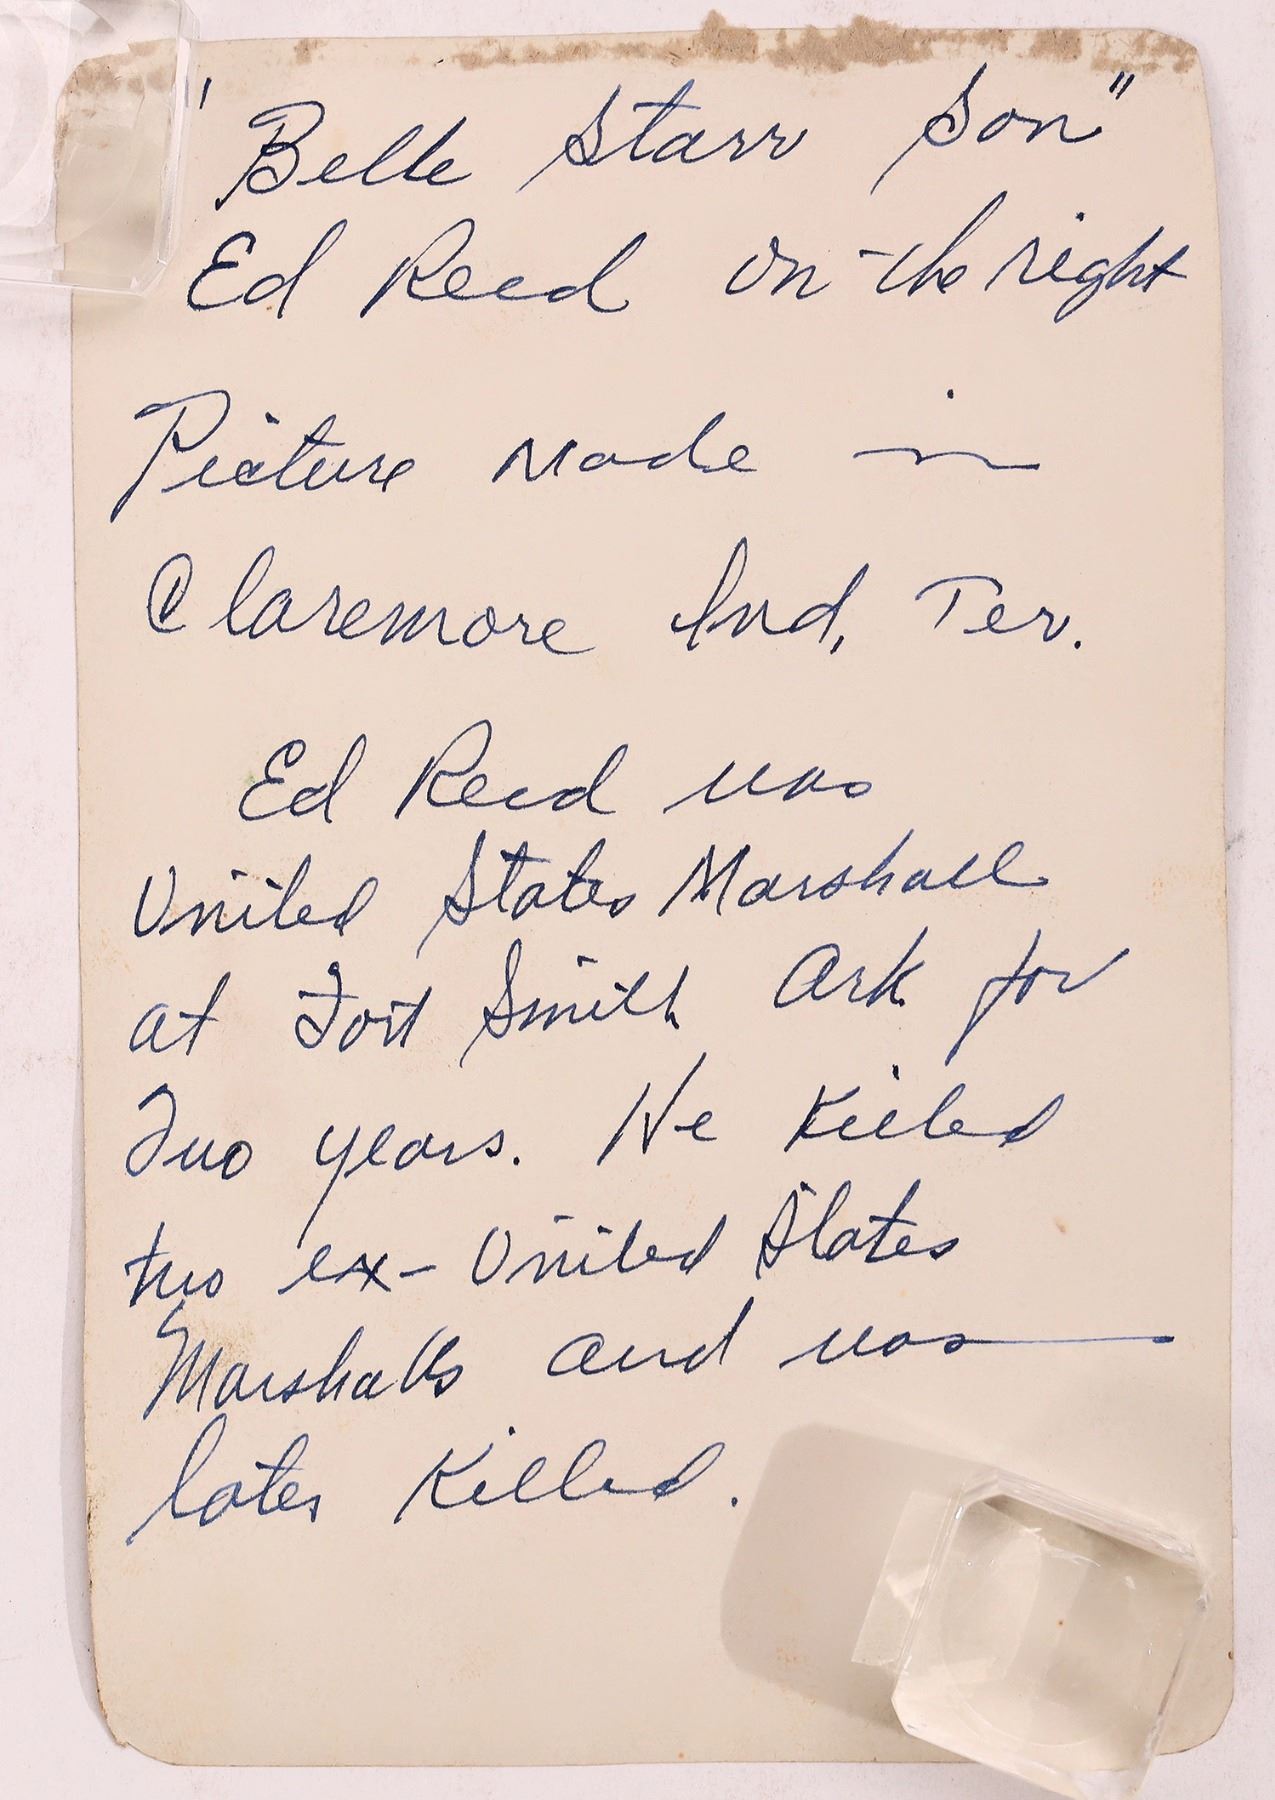 ' Belle Starr Son "
Ed Reed on the right
Picture Made in
Claremore Ind. Ter.
Ed Reed was
United States Marshall
at Fort Smith Ark for
Two years. He Killed
two ex-United States
Marshalls and was
later Killed.